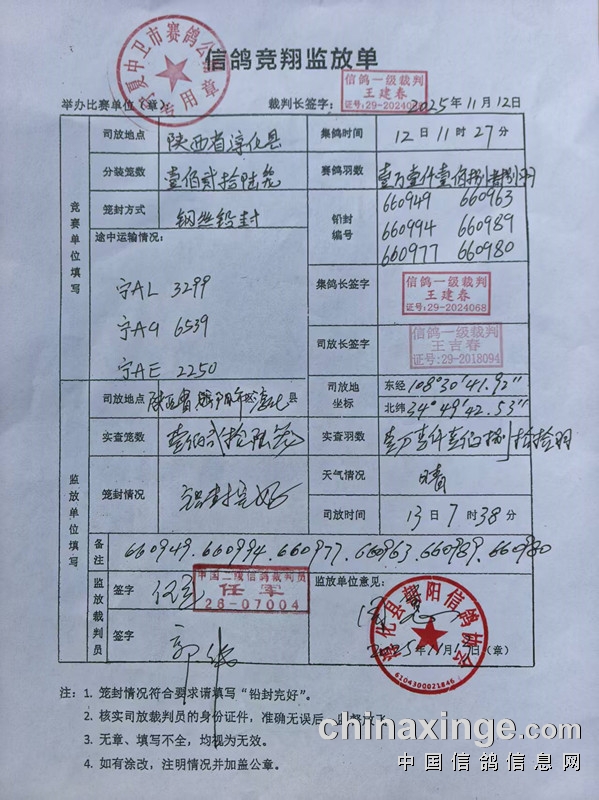 信鸽竞翔监放单
中卫市赛鸽公
专用章
信鸽一级裁判
王建春
证号:29-2024068
举办比赛单位（章） 裁判长签字： 2025年11月12日
竞赛单位填写
司放地点 陕西省淳化县 集鸽时间 12日11时27分
分装笼数 壹佰贰拾陆笼 赛鸽羽数 壹万壹仟壹佰捌拾捌羽
笼封方式 钢丝铅封 铅封编号 660949 660963
660994 660989
660977 660980
途中运输情况：
宁AL 3299
宁AQ 6539
宁AE 2250
集鸽长签字 信鸽一级裁判
王建春
证号:29-2024068
司放长签字 信鸽一级裁判
王吉春
证号:29-2018094
监放单位填写
司放地点 陕西省咸阳市淳化县 司放地坐标 东经 108°30′41.92″
北纬 34°49′42.53″
实查笼数 壹佰贰拾陆笼 实查羽数 壹万壹仟壹佰捌拾捌羽
笼封情况 铅封完好 天气情况 晴
司放时间 13日7时38分
备注 660949.660994.660977.660963.660989.660980
监放裁判员
签字 任军 中国二级信鸽裁判员
任军
26-07004
签字 郭
监放单位意见：
淳化县朝阳信鸽协会
6104300021846
2025年11月13日（章）
注：1. 笼封情况符合要求请填写“铅封完好”。
2. 核实司放裁判员的身份证件，准确无误后，监督放飞。
3. 无章、填写不全，均视为无效。
4. 如有涂改，注明情况并加盖公章。
chinaxinge.com
中国信鸽信息网